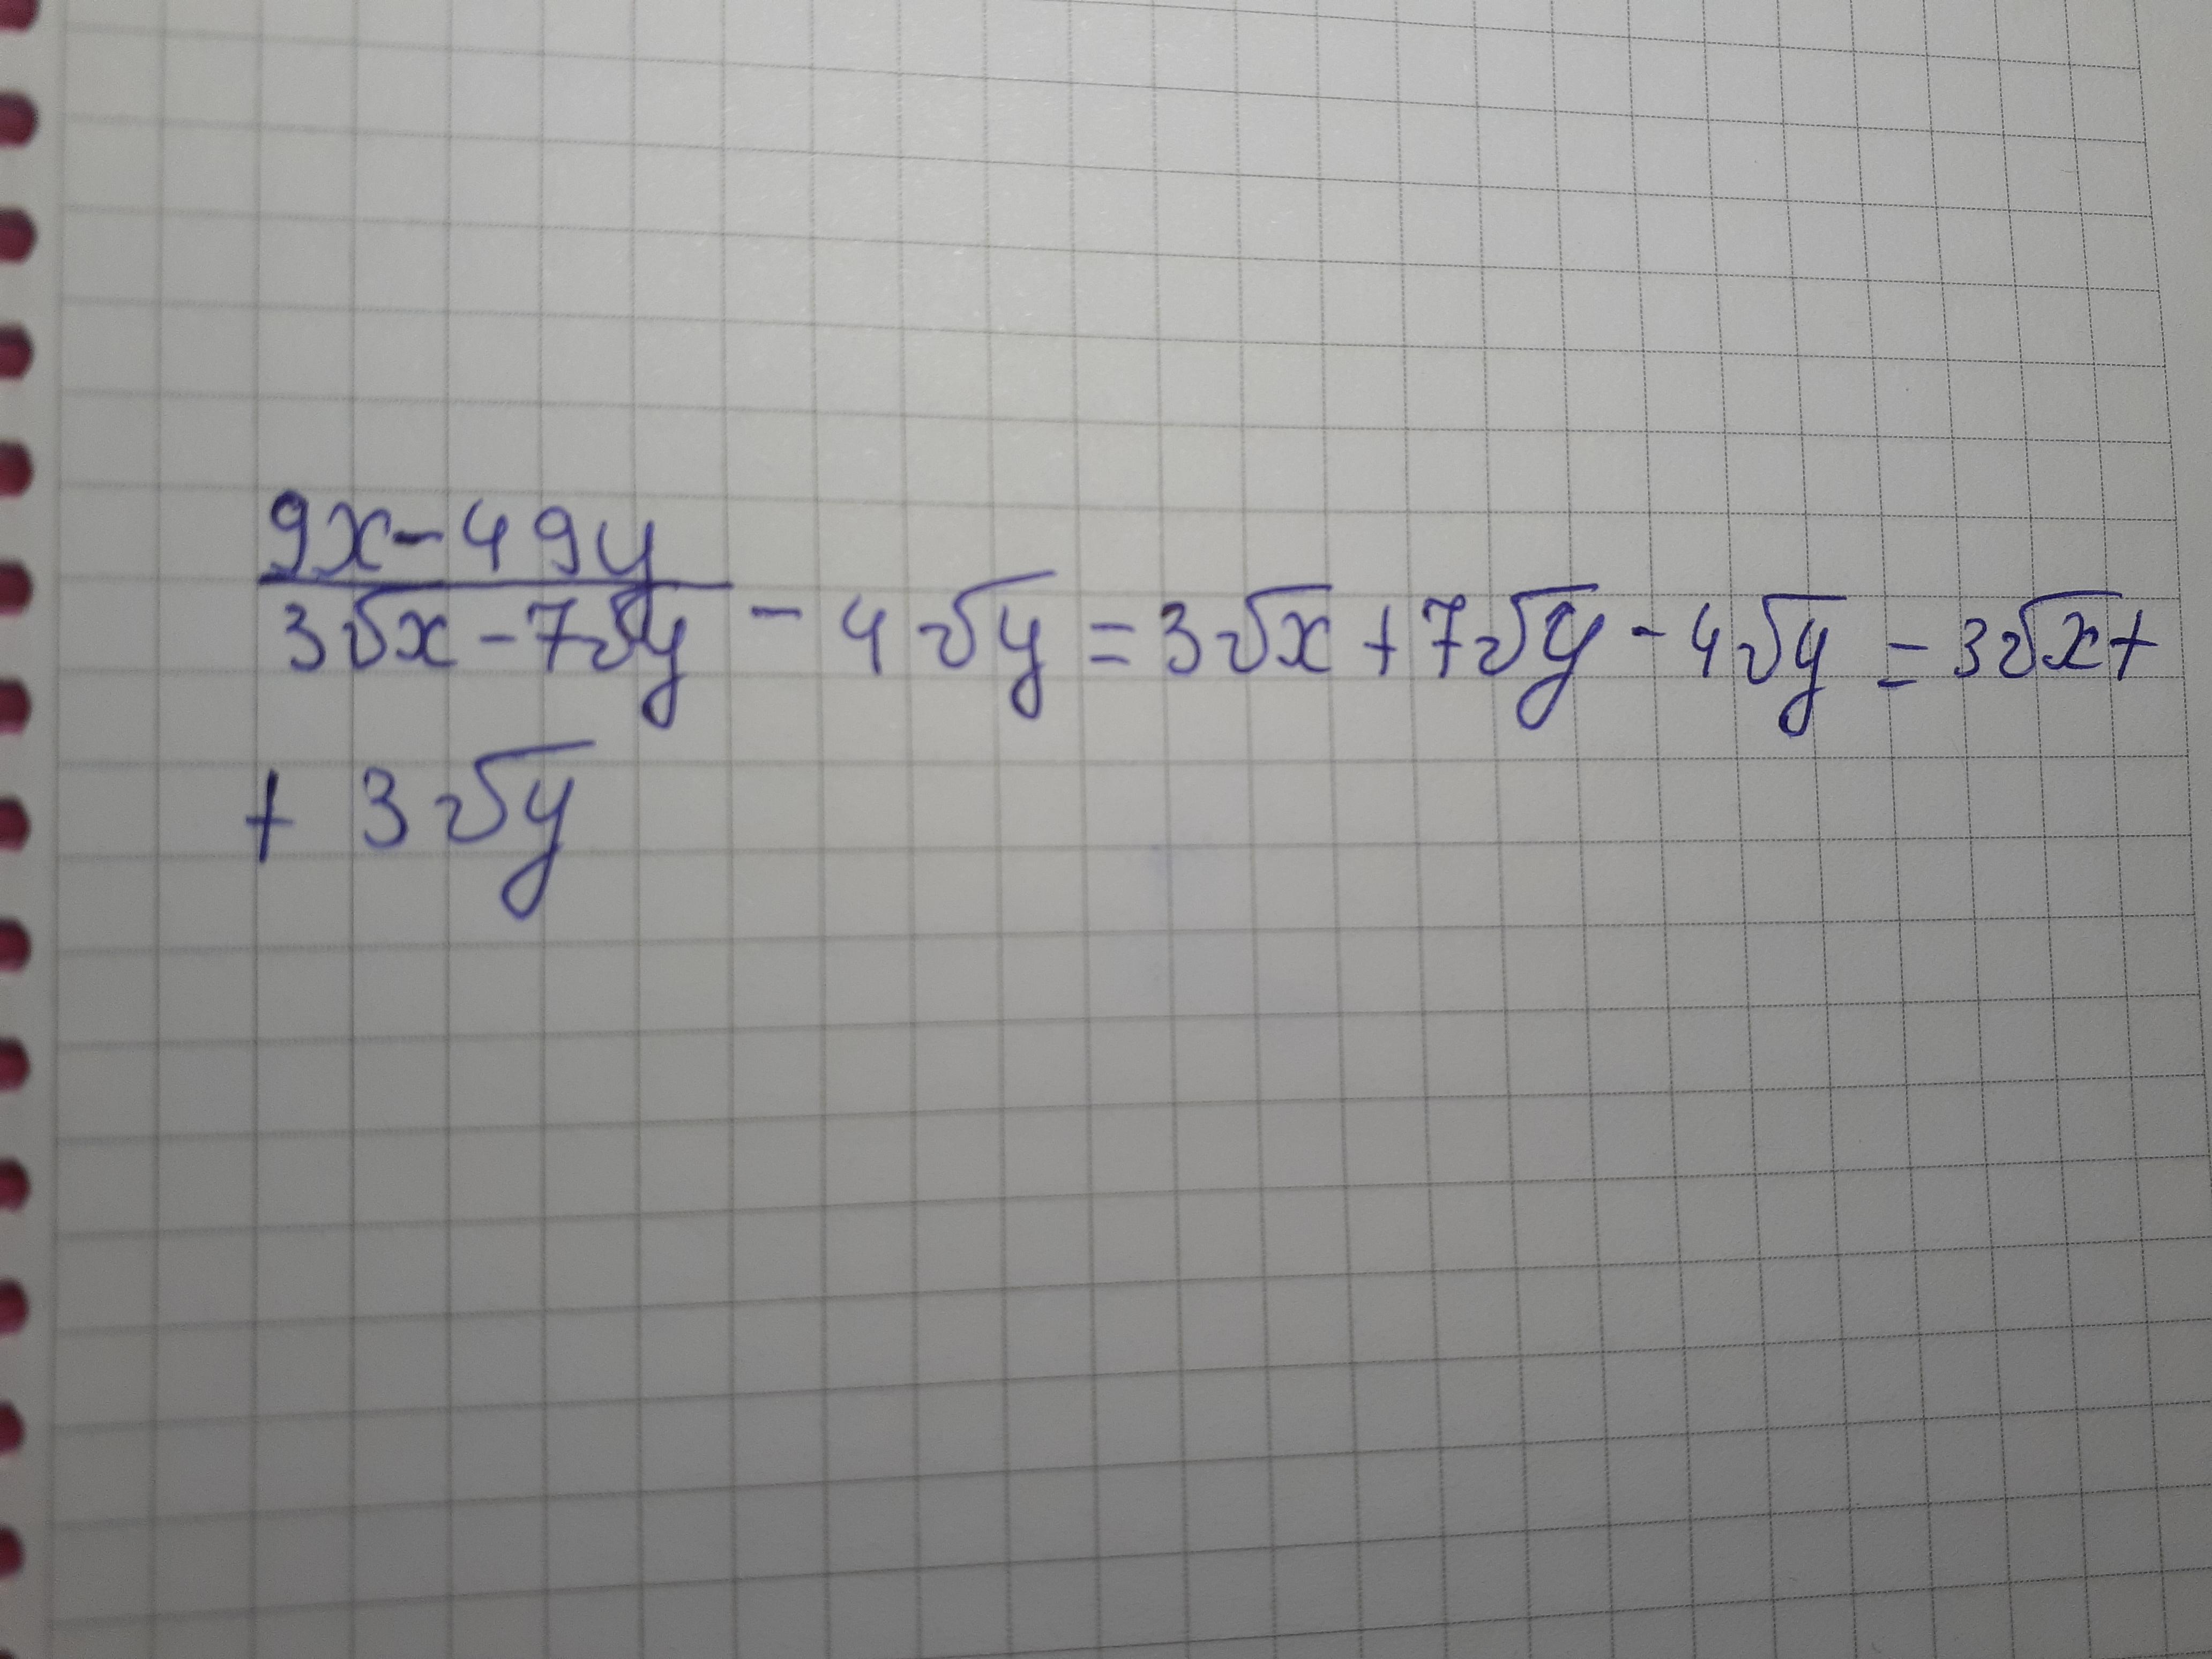 (9x-49y)/(3√x-7√y) - 4√y = 3√x + 7√y - 4√y = 3√x +
+ 3√y